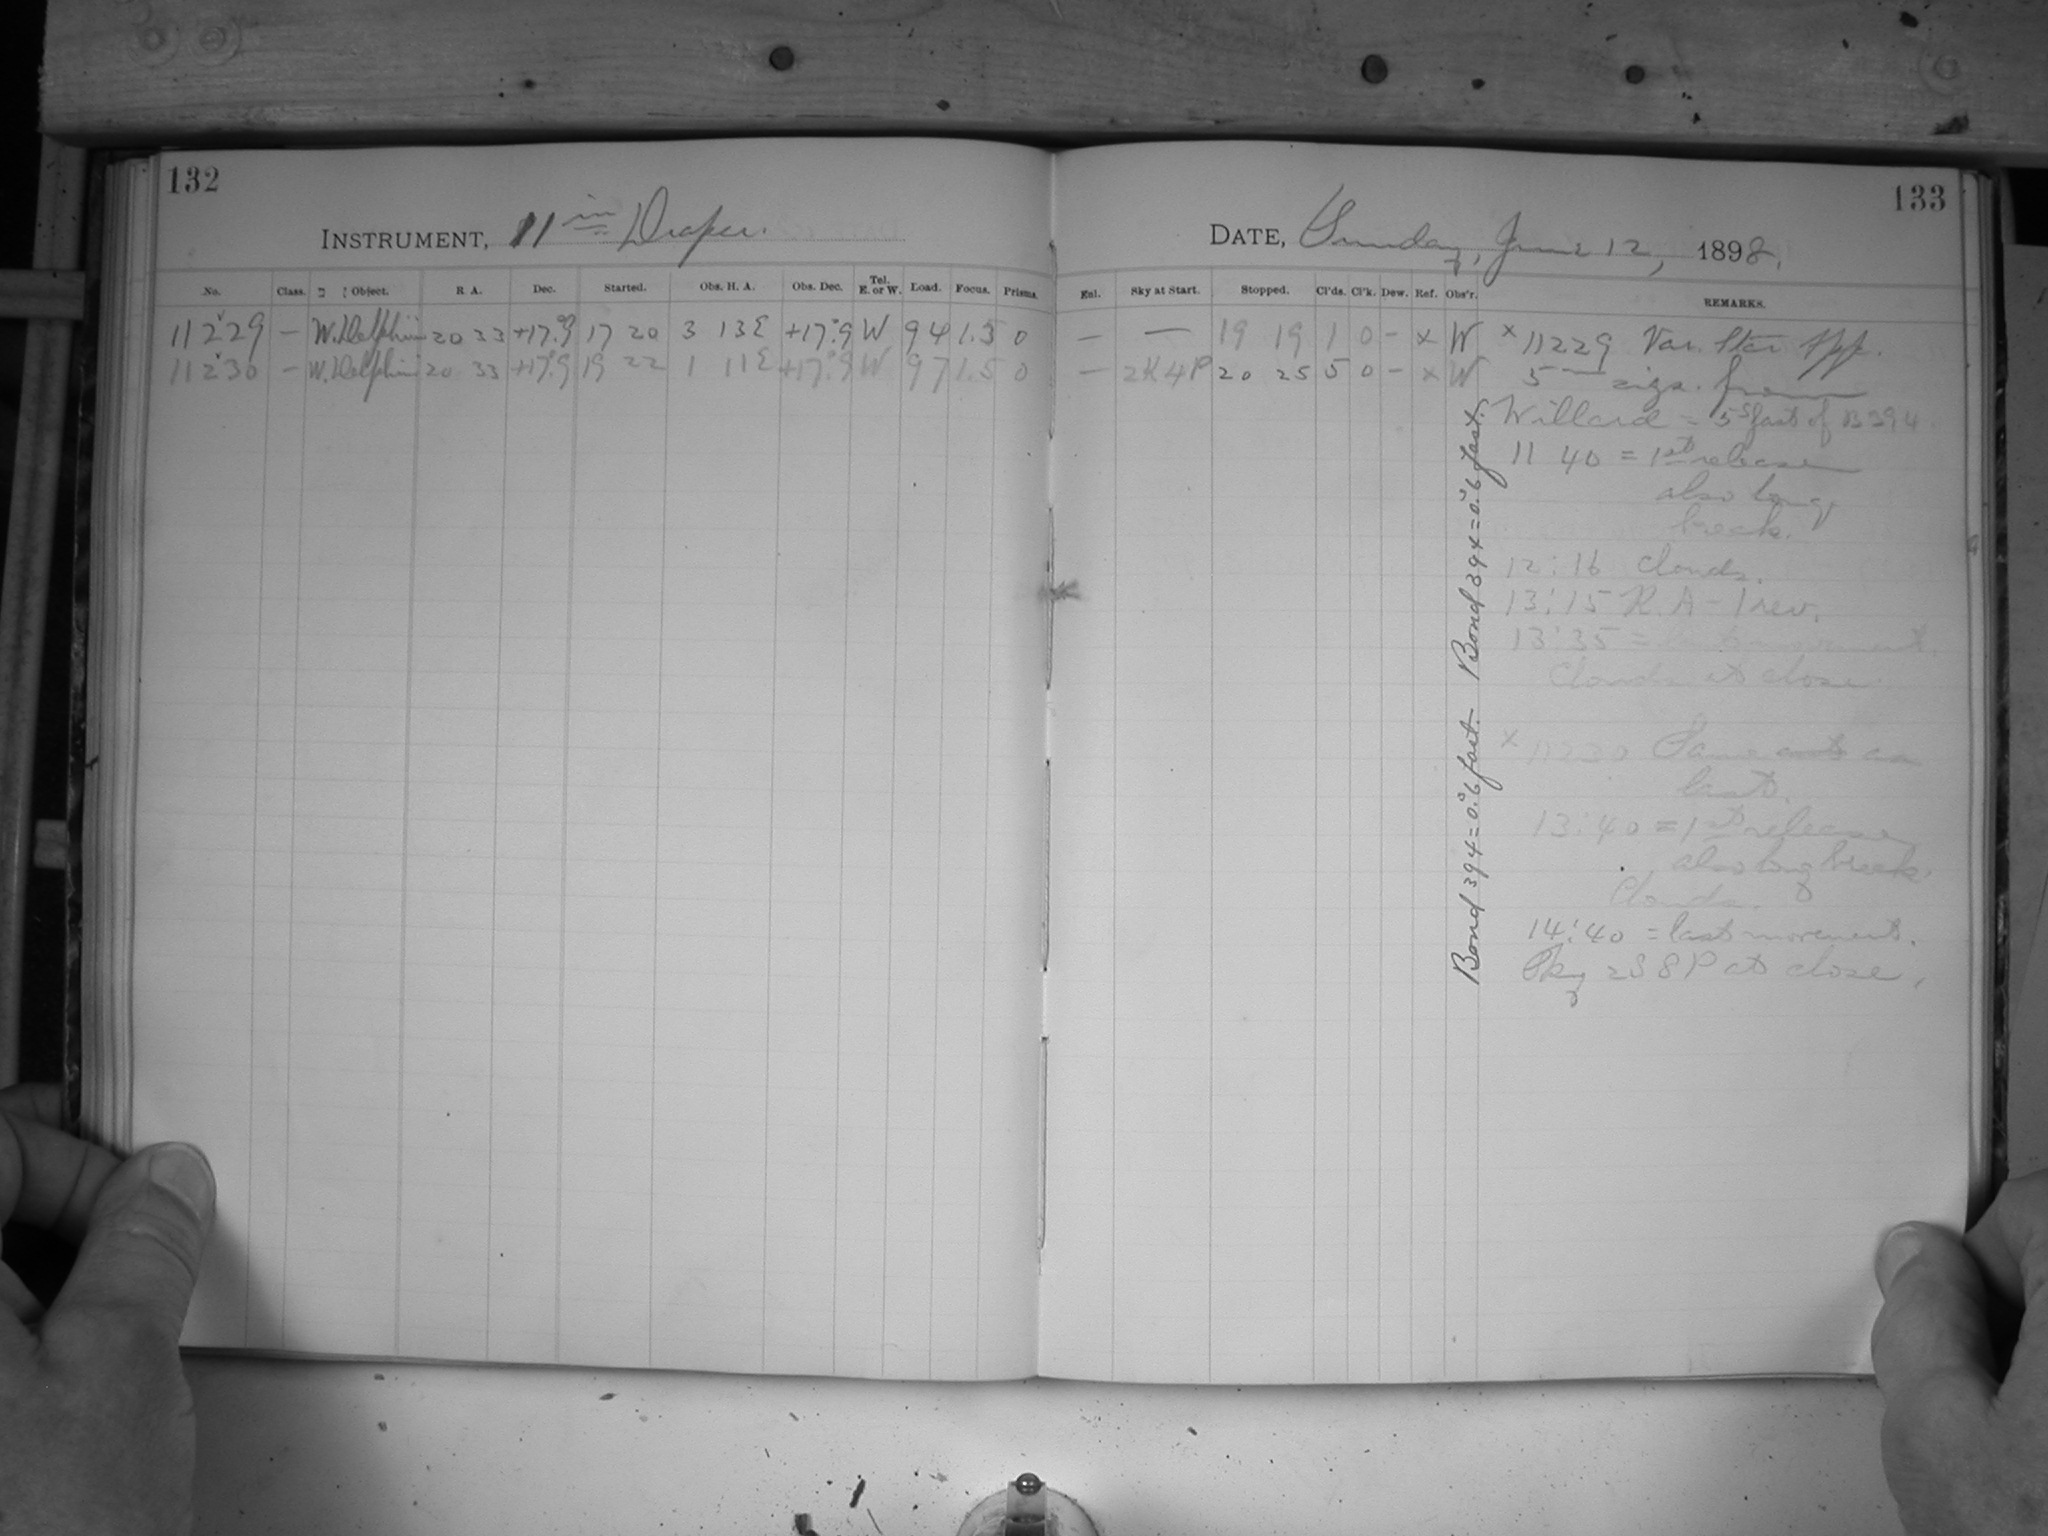 132
INSTRUMENT, 11 in Draper.
No. Class. Object. R A. Dec. Started. Obs. H. A. Obs. Dec. Tel. E. or W. Load. Focus. Prisms.
11229 — W. Delphini 20 33 +17°.9 17 20 3 13E +17°.9 W 94 1.5 0
11230 — W. Delphini 20 33 +17°.9 19 22 1 11E +17°.9 W 97 1.5 0
133
DATE, Sunday, June 12, 1898.
Enl. Sky at Start. Stopped. Cl'ds. Cl'k. Dew. Ref. Obs'r. REMARKS.
— — 19 19 1 0 - x W
— 2K4P 20 25 5 0 - x W
x 11229 Var. Star App.
5 — zigs. from
Willard = 5s fast of B 394.
11 40 = 1st release
also long
break.
12:16 Clouds.
13:15 R. A - 1 rev.
13:35 = last movement.
Clouds at close.
x 11230 Same as
last.
13:40 = 1st release
also long break.
Clouds.
14:40 = last movement.
Sky 2S8P at close.
Bond 394 = 0.s6 fast. Bond 394 = 0.s6 fast.